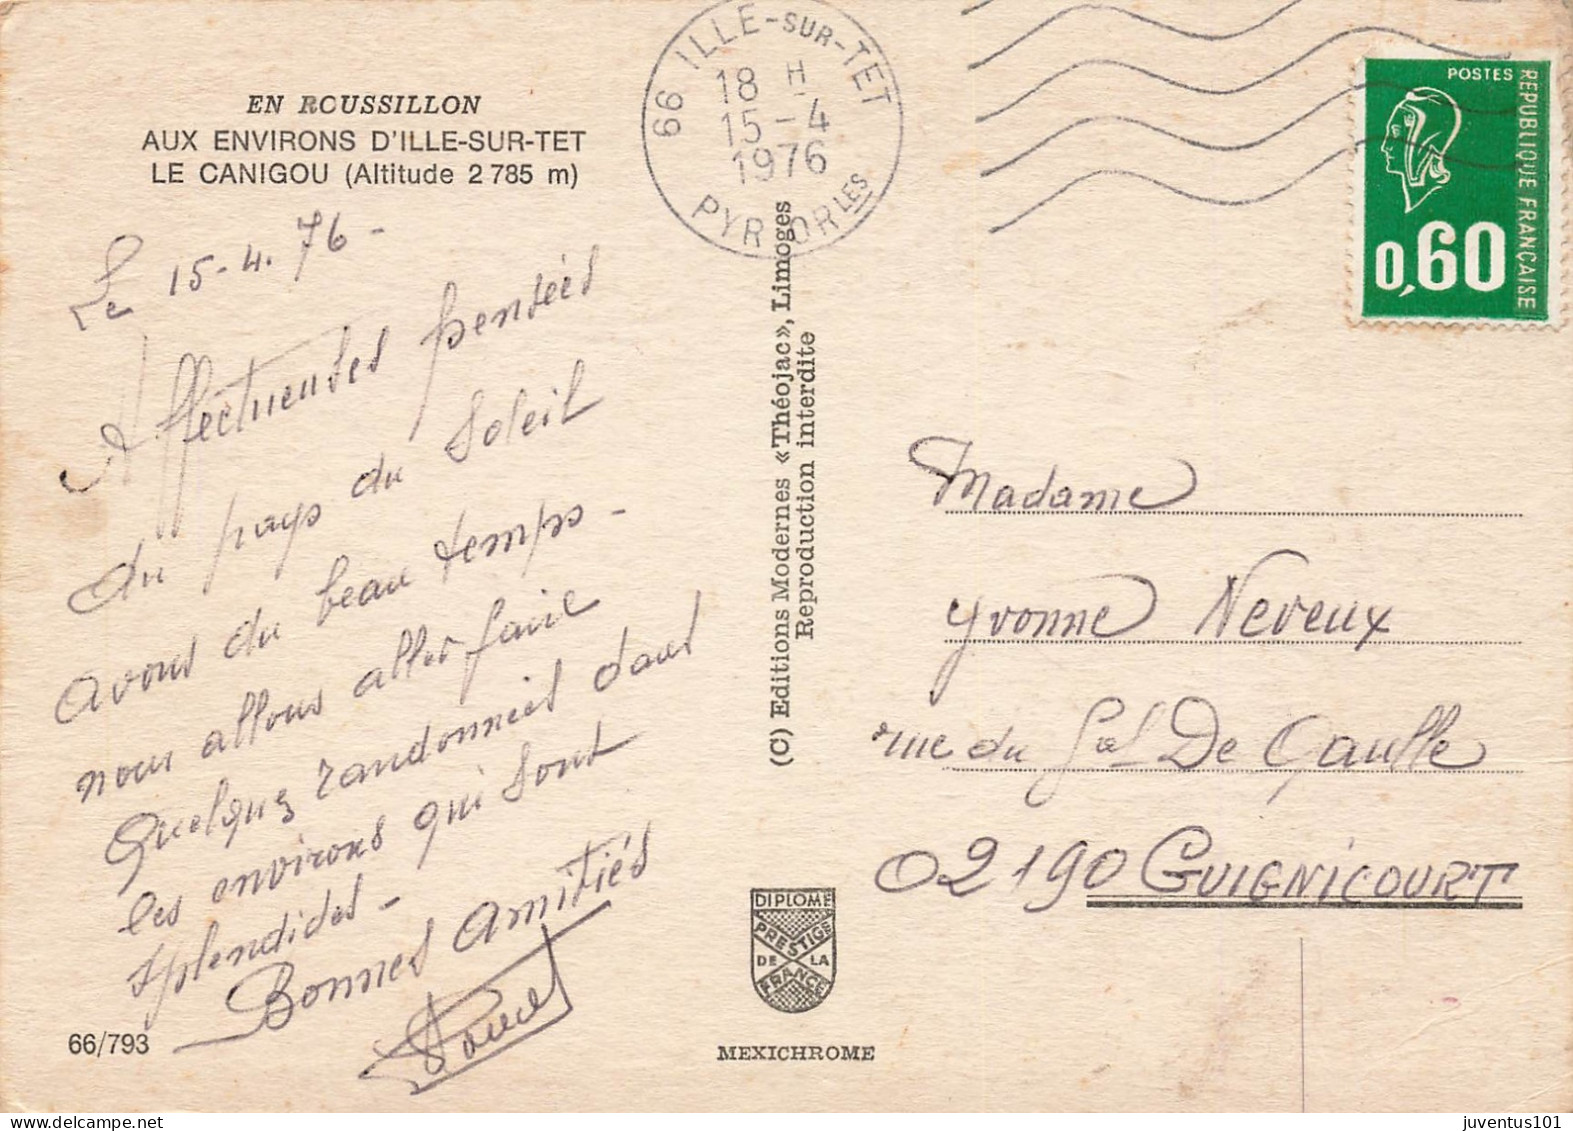 EN ROUSSILLON
AUX ENVIRONS D'ILLE-SUR-TET
LE CANIGOU (Altitude 2 785 m)
Le 15-4.76-
Affectueuses pensées
du pays du Soleil
avons du beau temps-
nous allons aller faire
Quelques randonnées dans
les environs qui sont
splendides-
Bonnes Amitiés
66/793
66 ILLE-SUR-TET
18 H
15-4
1976
PYR-ORLES
(C) Editions Modernes «Théojac», Limoges
Reproduction interdite
DIPLOME
PRESTIGE
DE LA
FRANCE
MEXICHROME
POSTES
REPUBLIQUE FRANÇAISE
0,60
Madame
Yvonne Neveux
rue du Gal De Gaulle
02190 GUIGNICOURT
juventus101